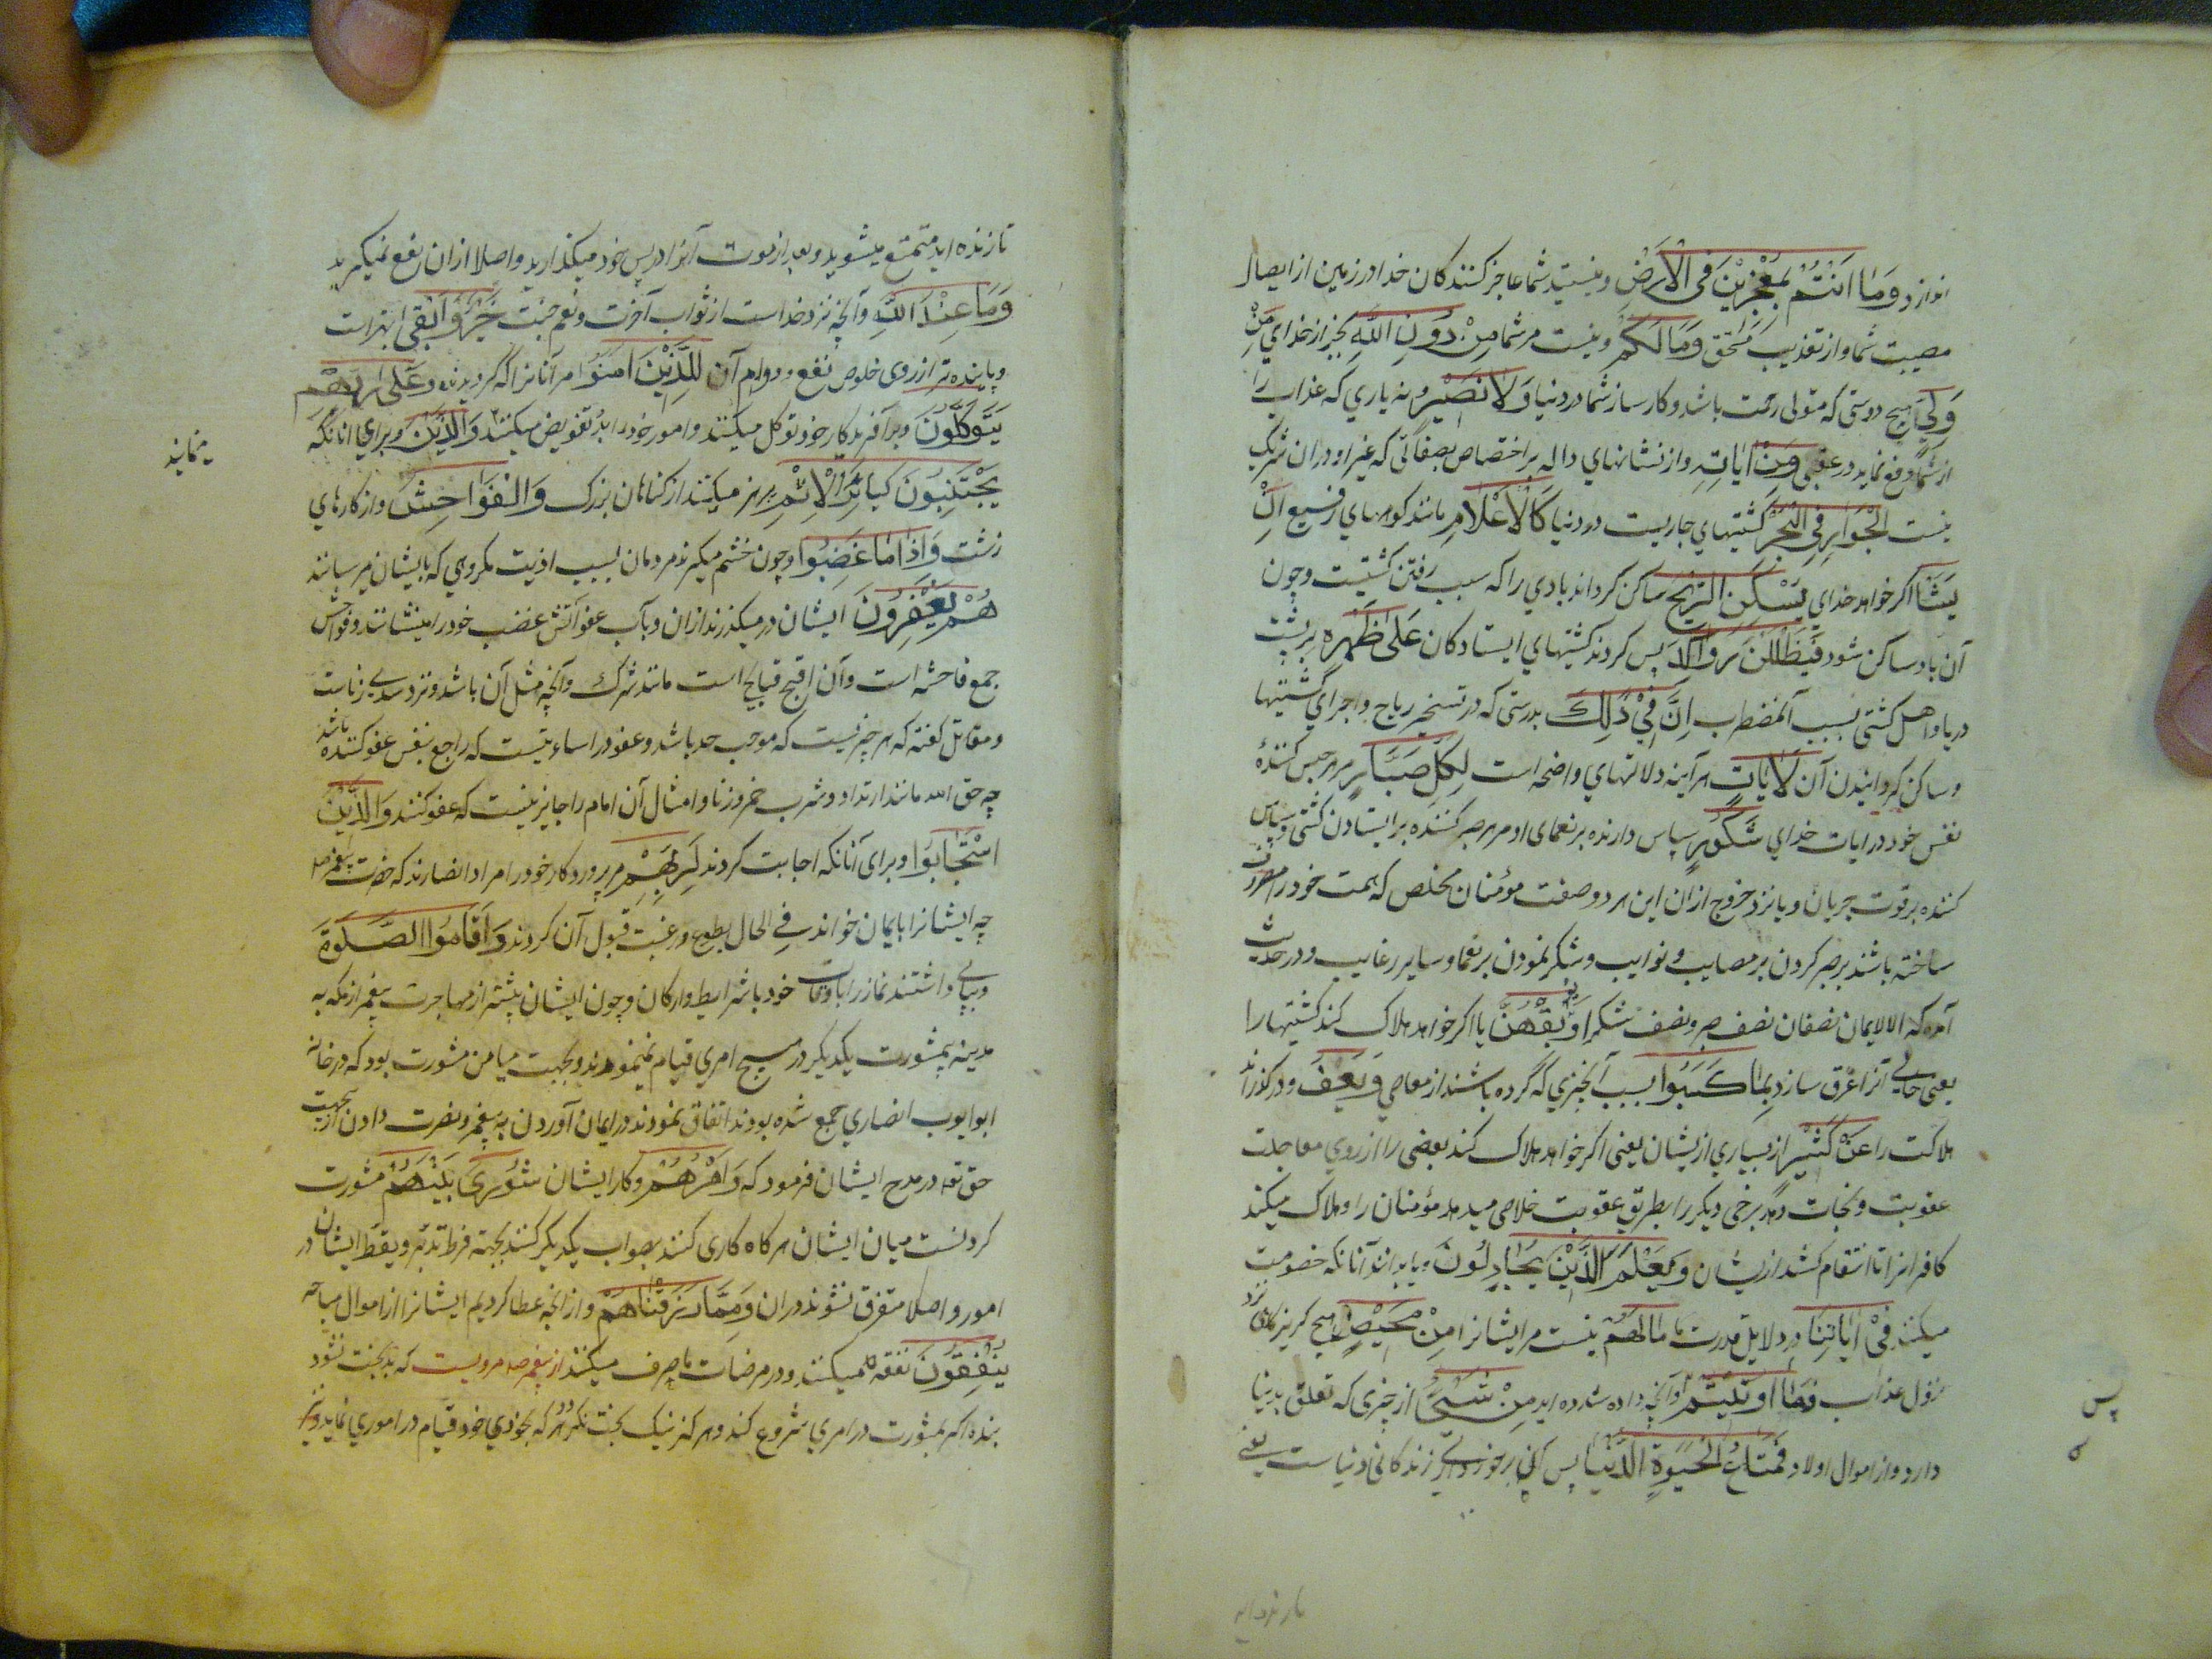 اندازد وَمَا اَنْتُمْ بِمُعْجِزِيْنَ فِى الْاَرْضِ و نیستید شما عاجز کنندکان خدا در زمین از ایصال
مصیبت شما و از تعذیب مستحق وَمَا لَكُمْ و نیست مر شما مِنْ دُوْنِ اللّٰهِ بجز از خدای مِنْ
وَلِيٍّ هیچ دوستی که متولی رحمت باشد و کارساز شما در دنیا وَلَا نَصِيْرٍ و نه یاری که عذاب را
از شما دفع نماید در عقبی وَمِنْ اٰيَاتِهِ و از نشانهای داله بر اختصاص بصفاتی که غیر او در ان شریک
نیست الْجَوَارِ فِى الْبَحْرِ کشتیهای جاریست در دریا كَالْاَعْلَامِ مانند کوههای رفیع اِنْ
يَشَأْ اکر خواهد خدای يُسْكِنِ الرِّيْحَ ساکن کرداند بادی را که سبب رفتن کشتیست و چون
آن باد ساکن شود فَيَظْلَلْنَ رَوَاكِدَ پس کردند کشتیهای ایستادکان عَلٰى ظَهْرِهِ بر پشت
دریا و اهل کشتی بسبب آن مضطرب اِنَّ فِيْ ذٰلِكَ بدرستی که در تسخیر ریاح و اجرای کشتیها
و ساکن کردانیدن آن لَاٰيَاتٍ هر آینه دلالتهای واضحه است لِكُلِّ صَبَّارٍ مر هر حبس کنندهٔ
نفس خود در ایات خدای شَكُوْرٍ سپاس دارنده بر نعمای او مر هر صبر کننده بر ایستادن کشتی و سپاس
کننده بر قوت جریان و یا نزد خروج از ان این هر دو صفت مؤمنان مخلص که همت خود را مصروف
ساخته باشند بر صبر کردن بر مصایب و نوایب و شکر نمودن بر نعما و سایر رغایب و در حدیث
آمده که الا الایمان نصفان نصف صبر و نصف شکر اَوْ يُوْبِقْهُنَّ یا اکر خواهد هلاک کند کشتیها را
یعنی اهالی آنرا غرق سازد بِمَا كَسَبُوْا بسبب آنچیزی که کرده باشند از معاصی وَيَعْفُ و درکذراند
هلاکت را عَنْ كَثِيْرٍ از بسیاری ازیشان یعنی اکر خواهد هلاک کند بعضی را از روی معاجلت
عقوبت و نجات دهد برخی دیکر را بطریق عقوبت خلاصی میدهد مؤمنان را و هلاک میکند
کافرانرا تا انتقام کشد ازیشان وَيَعْلَمَ الَّذِيْنَ يُجَادِلُوْنَ و یا بدانند آنانکه خصومت
میکنند فِيْ اٰيَاتِنَا در دلایل قدرت ما مَا لَهُمْ نیست مر ایشانرا مِنْ مَحِيْصٍ هیچ کریزکاهی نزد
نزول عذاب فَمَا اُوْتِيْتُمْ و آنچه داده شده اید مِنْ شَيْءٍ از چیزی که تعلق بدنیا
دارد و از اموال اولاد فَمَتَاعُ الْحَيٰوةِ الدُّنْيَا پس آن برخورداری زندکانی دنیاست یعنی
پس
تا زنده اید متمتع میشوید و بعد از موت آنرا در پس خود میکذارید و اصلا از ان نفع نمیکیرید
وَمَا عِنْدَ اللّٰهِ و آنچه نزد خداست از ثواب آخرت و نعیم جنت خَيْرٌ وَاَبْقٰى بهتر است
و پاینده تر از روی خلوص نفع و دوام آن لِلَّذِيْنَ اٰمَنُوْا مر آنانرا که کرویدند وَعَلٰى رَبِّهِمْ
يَتَوَكَّلُوْنَ و بر آفریدکار خود توکل میکنند و امور خود را بدو تفویض میکنند وَالَّذِيْنَ و برای انانکه
يَجْتَنِبُوْنَ كَبَائِرَ الْاِثْمِ پرهیز میکنند از کناهان بزرک وَالْفَوَاحِشَ و از کارهای
زشت وَاِذَا مَا غَضِبُوْا و چون خشم میکیرند مردمان بسبب اذیت مکروهی که بایشان میرسانند
هُمْ يَغْفِرُوْنَ ایشان در میکذرند از ان و بآب عفو آتش غضب خود را مینشانند و فواحش
جمع فاحشه است و آن اقبح قبایح است مانند شرک و آنچه مثل آن باشد و نزد سدی زناست
و مقاتل کفته که هر چیزیست که موجب حد باشد و عفو در اسائتیست که راجع بنفس عفو کننده باشد
چه حق الله مانند ارتداد و شرب خمر و زنا و امثال آن امام را جایز نیست که عفو کنند وَالَّذِيْنَ
اسْتَجَابُوْا و برای آنانکه اجابت کردند لِرَبِّهِمْ مر پروردکار خود را مراد انصارند که حضرت پیغمبر
چه ایشانرا بایمان خواند فی الحال بطوع و رغبت قبول آن کردند وَاَقَامُوا الصَّلٰوةَ
و بپای داشتند نماز را باوقات خود با شرایط و ارکان و چون ایشان پیشتر از مهاجرت پیغمبر از مکه به
مدینه بیمشورت یکدیکر در هیچ امری قیام نمینمودند و بجهت میامن مشورت بود که در خانه
ابو ایوب انصاری جمع شده بودند اتفاق نمودند در ایمان آوردن به پیغمبر و نصرت دادن ازینجهت
حق تعه در مدح ایشان فرمود که وَاَمْرُهُمْ و کار ایشان شُوْرٰى بَيْنَهُمْ مشورت
کردنست میان ایشان هر کاه کاری کنند بصواب یکدیکر کنند بجهة فرط تدبر و یقظ ایشان در
امور و اصلا متفرق نشوند در ان وَمِمَّا رَزَقْنَاهُمْ و از انچه عطا کردیم ایشانرا از اموال مباحه
يُنْفِقُوْنَ نفقه میکنند و در مرضات ما صرف میکنند از پیغمبر صه مرویست که بدبخت نشود
بنده اکر بمشورت در امری شروع کند و هر کز نیک بخت نکردد هر که بخودی خود قیام در اموری نماید